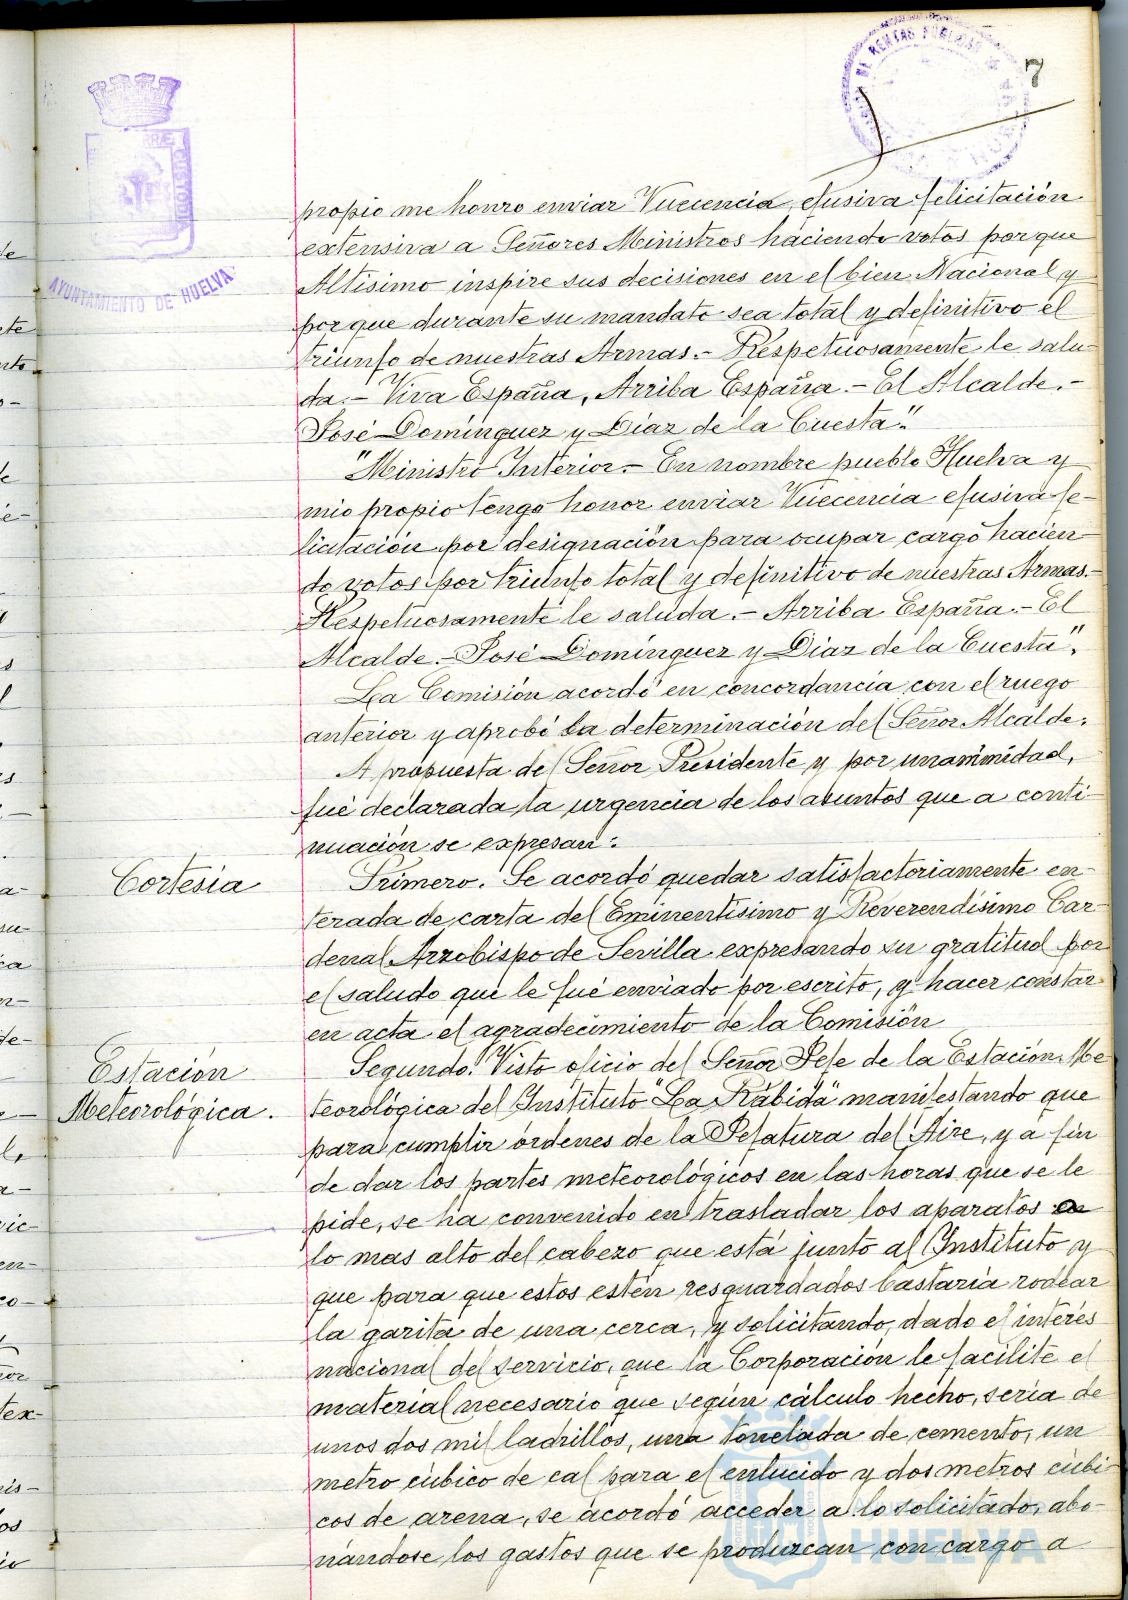 7
AYUNTAMIENTO DE HUELVA
propio me honro enviar Vuecencia efusiva felicitación
extensiva a Señores Ministros haciendo votos por que
Altisimo inspire sus decisiones en el bien Nacional y
por que durante su mandato sea total y definitivo el
triunfo de nuestras Armas.- Respetuosamente le salu-
da.- Viva España, Arriba España.- El Alcalde.-
José Domínguez y Díaz de la Cuesta".
"Ministro Interior.- En nombre pueblo Huelva y
mio propio tengo honor enviar Vuecencia efusiva fe-
licitación por designación para ocupar cargo hacien-
do votos por triunfo total y definitivo de nuestras Armas.-
Respetuosamente le saluda.- Arriba España.- El
Alcalde.- José Domínguez y Diaz de la Cuesta".
La Comisión acordó en concordancia con el ruego
anterior y aprobó la determinación del Señor Alcalde.
A propuesta del Señor Presidente y por unanimidad,
fué declarada la urgencia de los asuntos que a conti-
nuación se expresan:
Cortesia
Primero. Se acordó quedar satisfactoriamente en-
terada de carta del Eminentisimo y Reverendísimo Car-
denal Arzobispo de Sevilla expresando su gratitud por
el saludo que le fué enviado por escrito, y hacer constar
en acta el agradecimiento de la Comisión
Estación
Meteorológica.
Segundo. Visto oficio del Señor Jefe de la Estación Me
teorológica del Instituto "La Rábida" manifestando que
para cumplir órdenes de la Jefatura del Aire, y a fin
de dar los partes meteorológicos en las horas que se le
pide, se ha convenido en trasladar los aparatos a
lo mas alto del cabezo que está junto al Instituto y
que para que estos estén resguardados bastaria rodear
la garita de una cerca, y solicitando, dado el interés
nacional del servicio, que la Corporación le facilite el
material necesario que según cálculo hecho, sería de
unos dos mil ladrillos, una tonelada de cemento, un
metro cúbico de cal para el enlucido y dos metros cúbi-
cos de arena, se acordó acceder a lo solicitado, abo-
nándose los gastos que se produzcan con cargo a
HUELVA